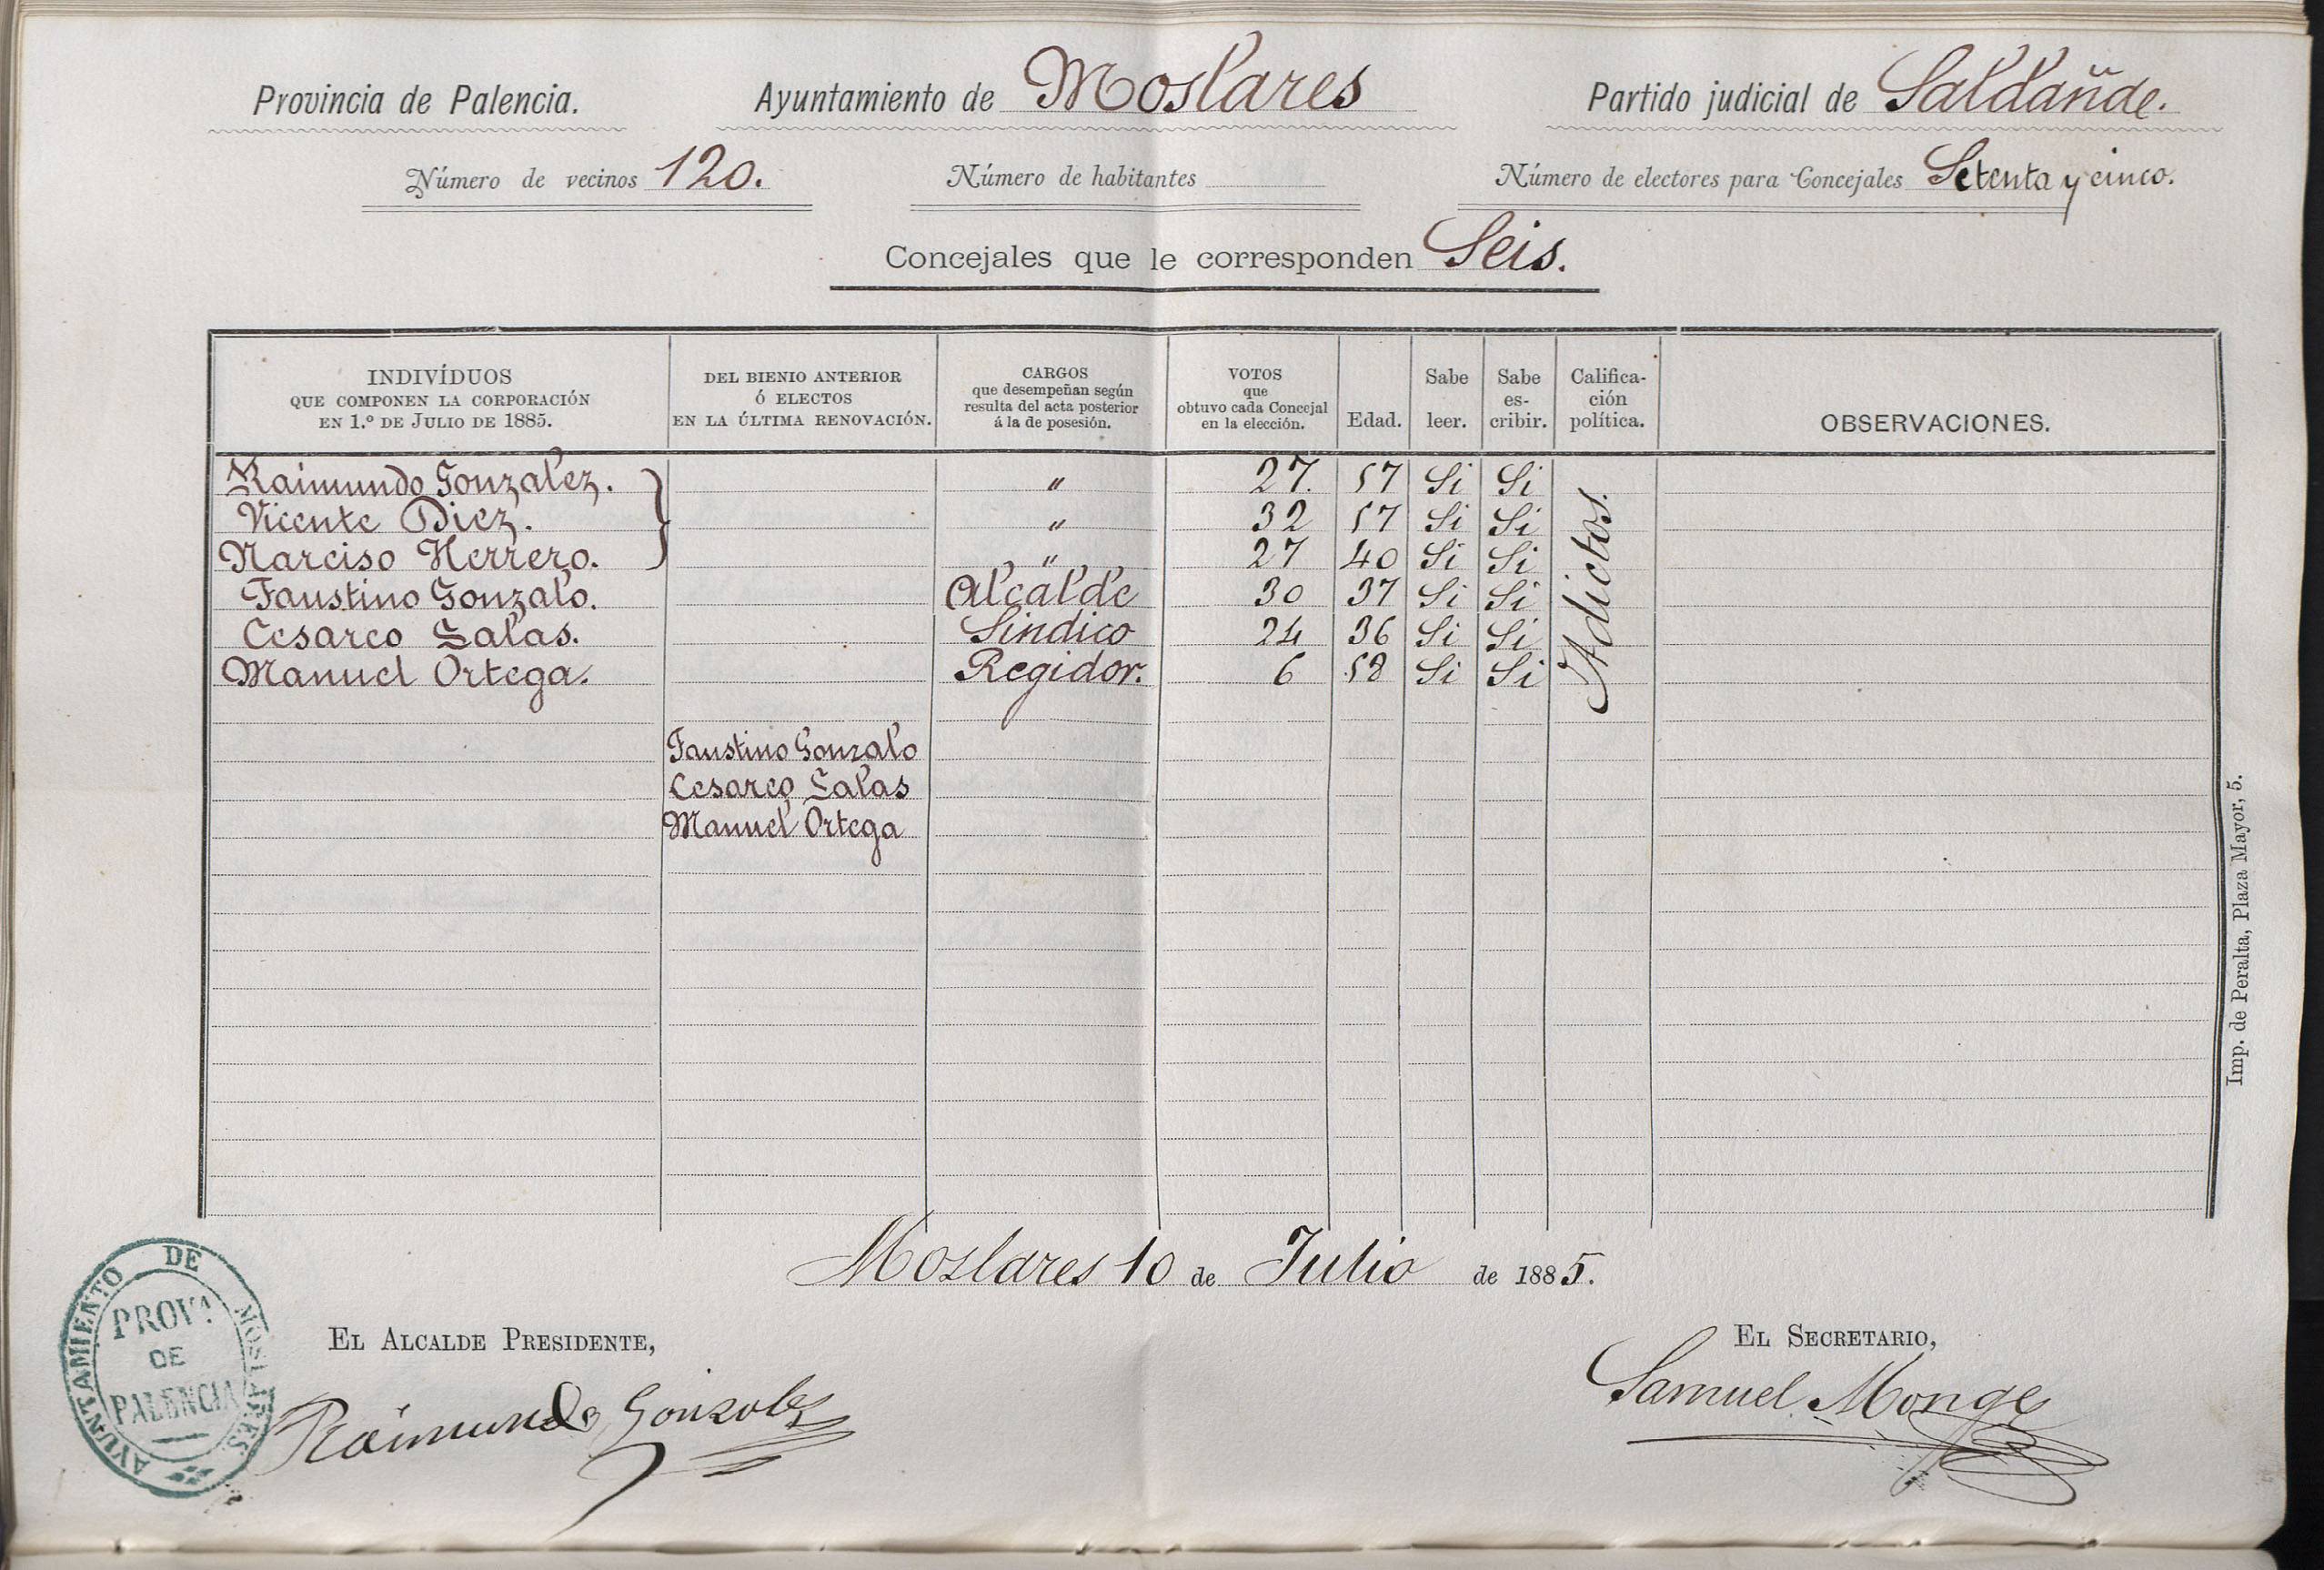 Provincia de Palencia. Ayuntamiento de Moslares Partido judicial de Saldañde.
Número de vecinos 120. Número de habitantes Número de electores para Concejales Setenta y cinco.
Concejales que le corresponden Seis.
INDIVÍDUOS
QUE COMPONEN LA CORPORACIÓN
EN 1.º DE JULIO DE 1885.
DEL BIENIO ANTERIOR
Ó ELECTOS
EN LA ÚLTIMA RENOVACIÓN.
CARGOS
que desempeñan según
resulta del acta posterior
á la de posesión.
VOTOS
que
obtuvo cada Concejal
en la elección.
Edad.
Sabe
leer.
Sabe
es-
cribir.
Califica-
ción
política.
OBSERVACIONES.
Raimundo Gonzalez. } " 27. 57 Si Si
Vicente Diez. " 32 57 Si Si
Narciso Herrero. " 27 40 Si Si
Faustino Gonzalo. Alcalde 30 37 Si Si
Cesareo Salas. Sindico 24 36 Si Si
Manuel Ortega. Regidor. 6 58 Si Si
Adictos.
Faustino Gonzalo
Cesareo Salas
Manuel Ortega
Imp. de Peralta, Plaza Mayor, 5.
Moslares 10 de Julio de 1885.
EL ALCALDE PRESIDENTE,
Raimundo Gonzalez
EL SECRETARIO,
Samuel Monge
AYUNTAMIENTO DE MOSLARES
PROV.ª
DE
PALENCIA